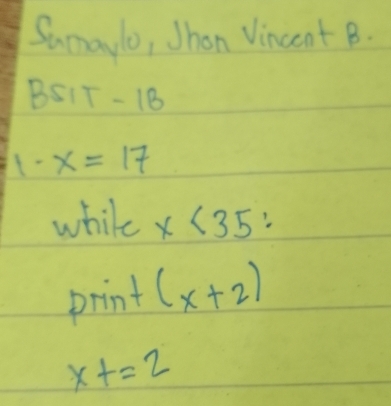 Sumaylo, Jhon Vincent B.
BSIT - 1B
1 - x = 17
while x < 35:
print (x+2)
x += 2